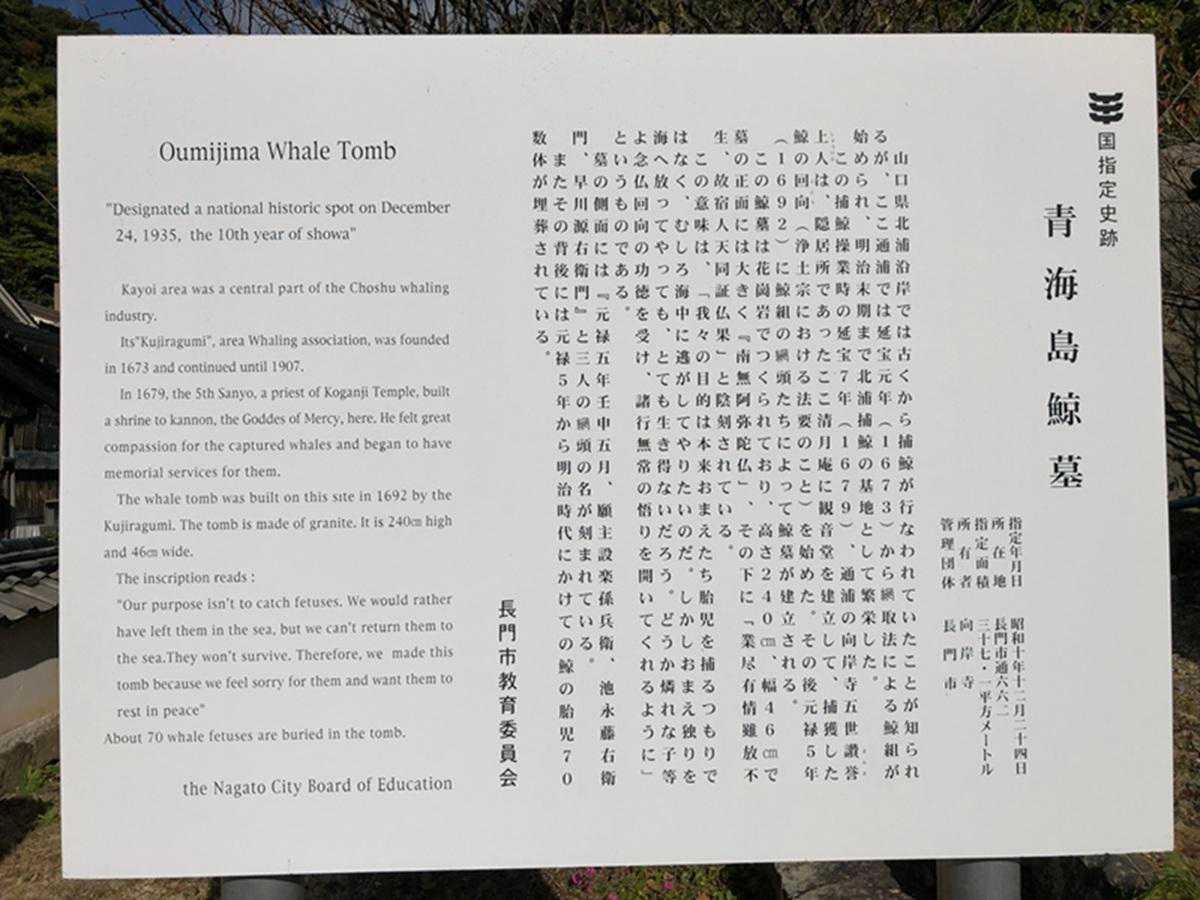 Oumijima Whale Tomb
"Designated a national historic spot on December
24, 1935, the 10th year of showa"
Kayoi area was a central part of the Choshu whaling
industry.
Its"Kujiragumi", area Whaling association, was founded
in 1673 and continued until 1907.
In 1679, the 5th Sanyo, a priest of Koganji Temple, built
a shrine to kannon, the Goddes of Mercy, here. He felt great
compassion for the captured whales and began to have
memorial services for them.
The whale tomb was built on this site in 1692 by the
Kujiragumi. The tomb is made of granite. It is 240㎝ high
and 46㎝ wide.
The inscription reads :
"Our purpose isn't to catch fetuses. We would rather
have left them in the sea, but we can't return them to
the sea.They won't survive. Therefore, we made this
tomb because we feel sorry for them and want them to
rest in peace"
About 70 whale fetuses are buried in the tomb.
the Nagato City Board of Education
国指定史跡
青海島鯨墓
指定年月日 昭和十年十二月二十四日
所在地 長門市通六六二
指定面積 三十七・一平方メートル
所有者 向岸寺
管理団体 長門市
山口県北浦沿岸では古くから捕鯨が行なわれていたことが知られ
るが、ここ通浦では延宝元年(1673)から網取法による鯨組が
始められ、明治末期まで北浦捕鯨の基地として繁栄した。
この捕鯨操業時の延宝7年(1679)、通浦の向岸寺五世讃誉
上人は、隠居所であったここ清月庵に観音堂を建立して、捕獲した
鯨の回向(浄土宗における法要のこと)を始めた。その後元禄5年
(1692)に鯨組の網頭たちによって鯨墓が建立される。
この鯨墓は花崗岩でつくられており、高さ240㎝、幅46㎝で
墓の正面には大きく『南無阿弥陀仏」、その下に『業尽有情雖放不
生、故宿人天同証仏果」と陰刻されている。
この意味は、「我々の目的は本来おまえたち胎児を捕るつもりで
はなく、むしろ海中に逃がしてやりたいのだ。しかしおまえ独りを
海へ放ってやっても、とても生き得ないだろう。どうか憐れな子等
よ念仏回向の功徳を受け、諸行無常の悟りを開いてくれるように」
というものである。
墓の側面には『元禄五年壬申五月、願主設楽孫兵衛、池永藤右衛
門、早川源右衛門』と三人の網頭の名が刻まれている。
またその背後には元禄5年から明治時代にかけての鯨の胎児70
数体が埋葬されている。
長門市教育委員会